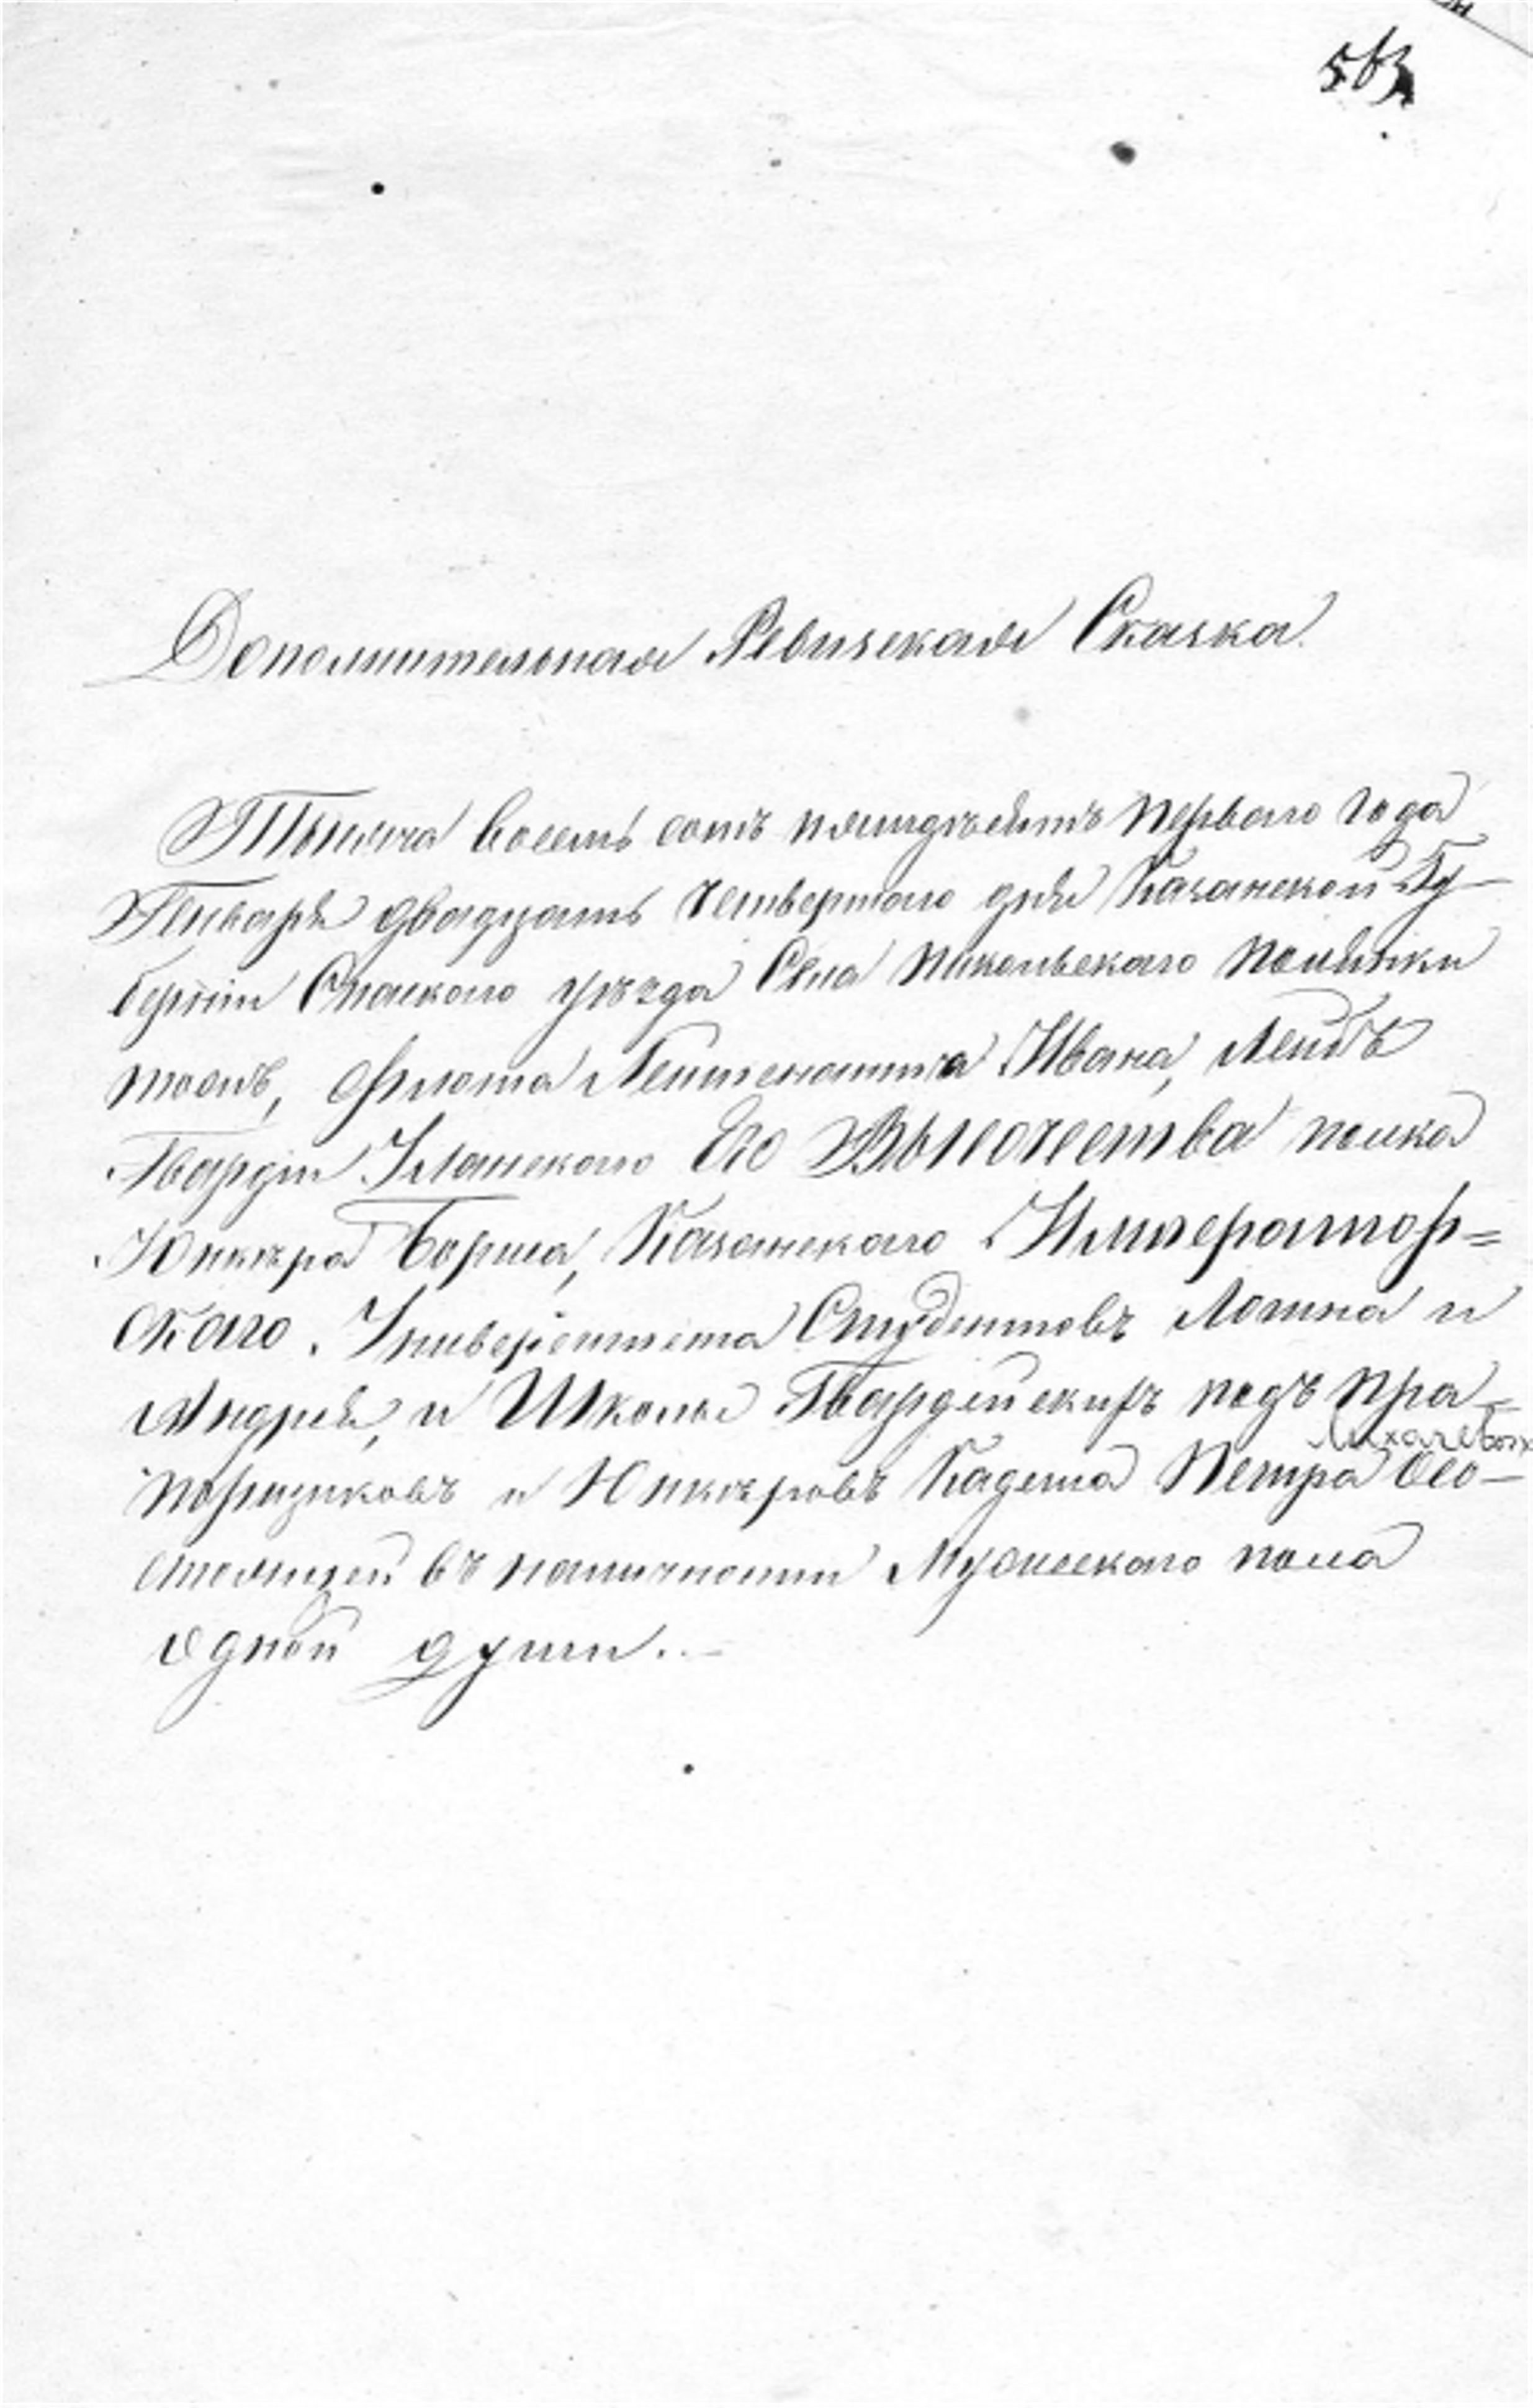 563
Дополнительная Ревизская Сказка.
Тысяча восемь сотъ пятидесятъ перваго года
Генваря двадцать четвертаго дня Казанской Гу-
берніи Спаскаго уѣзда Села Никольскаго
Флота Лейтенанта Ивана, Лейбъ
Гвардіи Уланскаго Его Высочества полка
Юнкера Бориса, Казанскаго Император=
скаго Университета Студентовъ Логина и
Андрея, и Школы Гвардейскихъ подъ пра-
Лихачевыхъ
порщиковъ и Юнкеровъ Кадета Петра о со-
стоящей въ наличности Мужескаго пола
одной души.